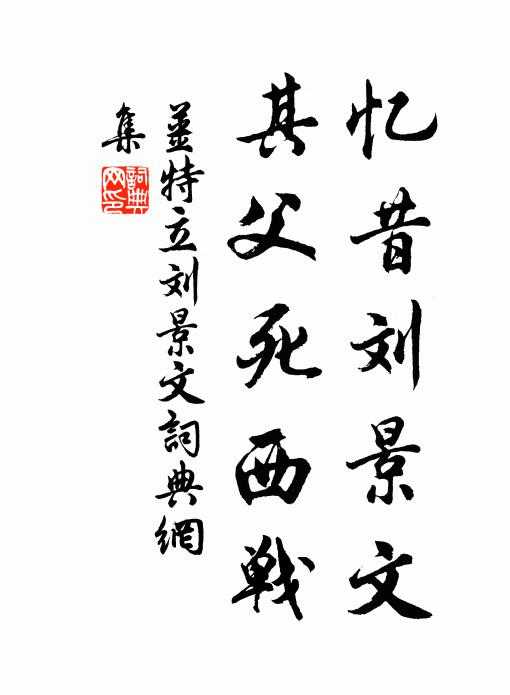 忆昔刘景文
其父死西戦
姜特立刘景文詞典網
集
詞典网印